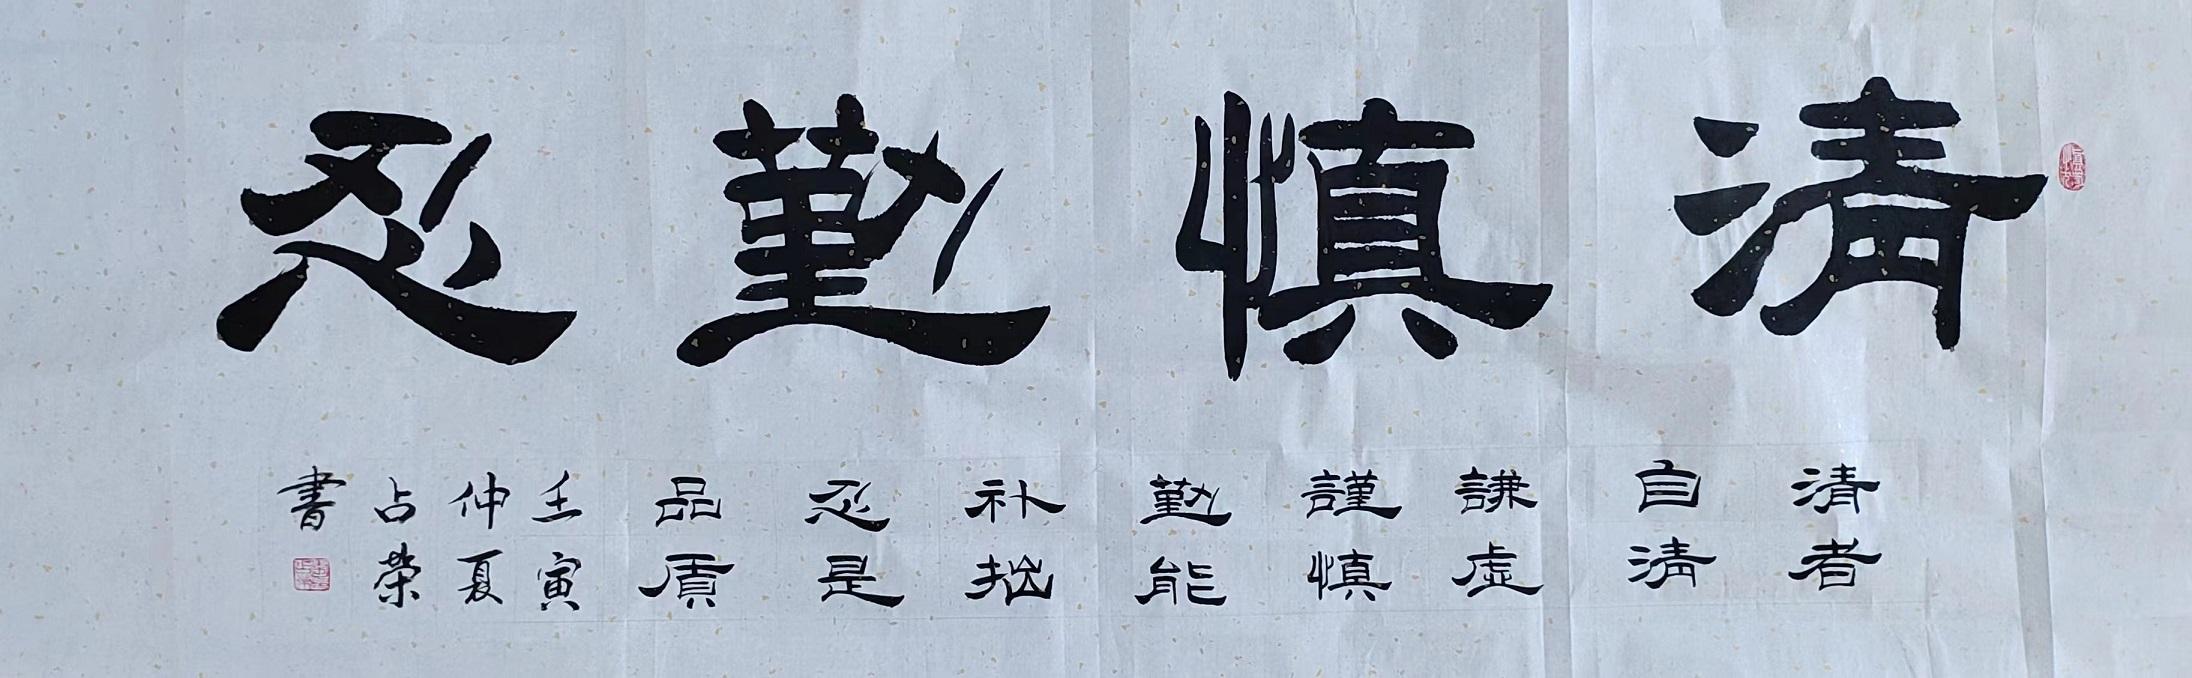 清慎勤忍
清者
自清
謙虛
謹慎
勤能
补拙
忍是
品质
壬寅
仲夏
占榮
書